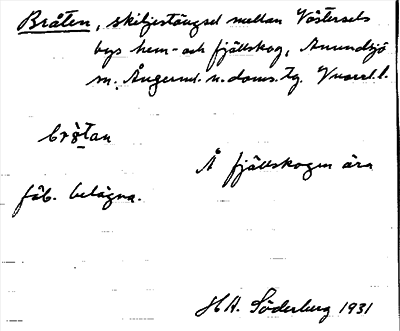 Bråten, skiljestängsel mellan Västersels
bys hem- och fjällskog, Anundsjö
sn. Ångerml. n. doms. tg.
brǻtan
Å fjällskogen ära
fäb. belägna.
HA. Söderberg 1931